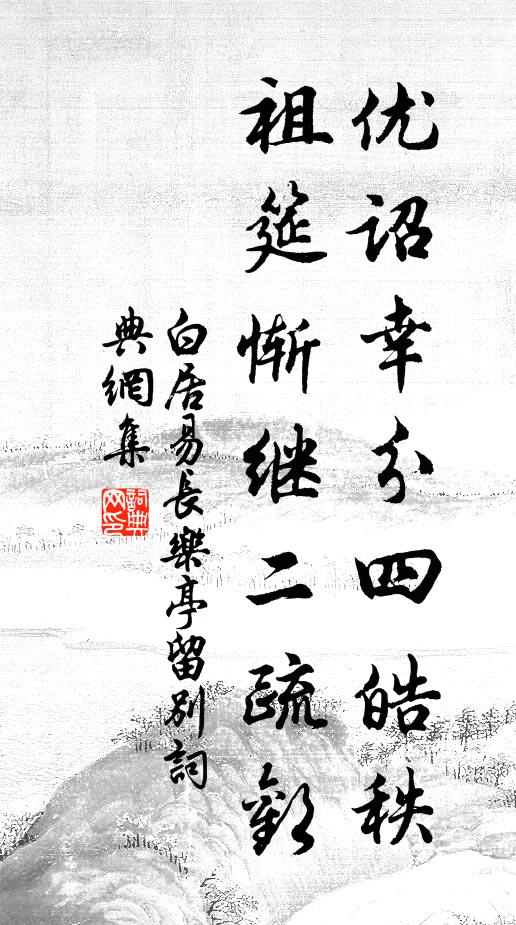 优诏幸分四皓秩
祖筵惭继二疏歡
白居易長樂亭留別詞
典網集
詞典
网印